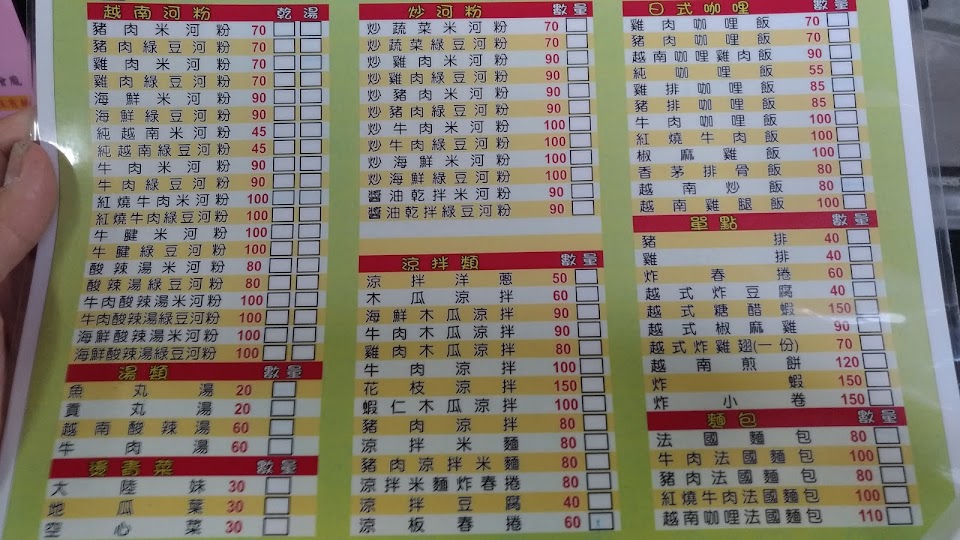 越南河粉 乾 湯
豬肉米河粉 70
豬肉綠豆河粉 70
雞肉米河粉 70
雞肉綠豆河粉 70
海鮮米河粉 90
海鮮綠豆河粉 90
純越南米河粉 45
純越南綠豆河粉 45
牛肉米河粉 90
牛肉綠豆河粉 90
紅燒牛肉米河粉 100
紅燒牛肉綠豆河粉 100
牛腱米河粉 100
牛腱綠豆河粉 100
酸辣湯米河粉 80
酸辣湯綠豆河粉 80
牛肉酸辣湯米河粉 100
牛肉酸辣湯綠豆河粉 100
海鮮酸辣湯米河粉 100
海鮮酸辣湯綠豆河粉 100
湯類 數量
魚丸湯 20
貢丸湯 20
越南酸辣湯 60
牛肉湯 60
燙青菜 數量
大陸妹 30
地瓜葉 30
空心菜 30
炒河粉 數量
炒蔬菜米河粉 70
炒蔬菜綠豆河粉 70
炒雞肉米河粉 90
炒雞肉綠豆河粉 90
炒豬肉米河粉 90
炒豬肉綠豆河粉 90
炒牛肉米河粉 100
炒牛肉綠豆河粉 100
炒海鮮米河粉 100
炒海鮮綠豆河粉 100
醬油乾拌米河粉 90
醬油乾拌綠豆河粉 90
涼拌類 數量
涼拌洋蔥 50
木瓜涼拌 60
海鮮木瓜涼拌 90
牛肉木瓜涼拌 90
雞肉木瓜涼拌 80
牛肉涼拌 100
花枝涼拌 150
蝦仁木瓜涼拌 100
豬肉涼拌 80
涼拌米麵 80
豬肉涼拌米麵 80
涼拌米麵炸春捲 80
涼拌豆腐 40
涼板春捲 60
日式咖哩 數量
雞肉咖哩飯 70
豬肉咖哩飯 70
越南咖哩雞肉飯 90
純咖哩飯 55
雞排咖哩飯 85
豬排咖哩飯 85
牛肉咖哩飯 100
紅燒牛肉飯 100
椒麻雞飯 100
香茅排骨飯 80
越南炒飯 80
越南雞腿飯 100
單點 數量
豬排 40
雞排 40
炸春捲 60
越式炸豆腐 40
越式糖醋蝦 150
越式椒麻雞 90
越式炸雞翅(一份) 70
越南煎餅 120
炸蝦 150
炸小卷 150
麵包 數量
法國麵包 80
牛肉法國麵包 100
豬肉法國麵包 80
紅燒牛肉法國麵包 100
越南咖哩法國麵包 110